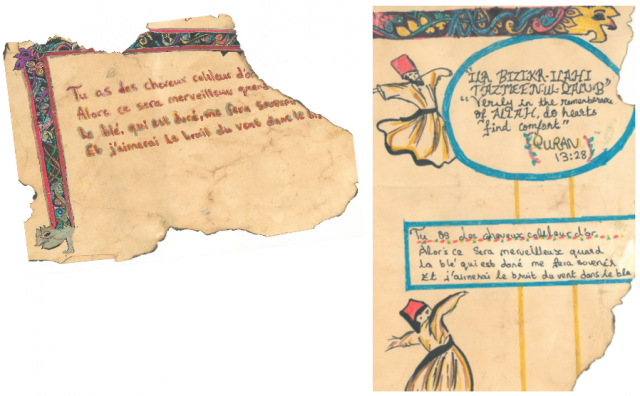 Tu as des cheveux couleur d'o
Alors ce sera merveilleux quand
Le blé, qui est doré, me fera souvenir
Et j'aimerai le bruit du vent dans le b
ILA BIZIKR-ILAHI
TATMEEN-UL-QALUB"
"Verily in the remembrance
of ALLAH, do hearts
find comfort"
QURAN
13:28
Tu as des cheveux couleur d'or
Alors ce sera merveilleux quand
la blé qui est doré me fera souvenir
Et j'aimerai le bruit du vent dans le ble